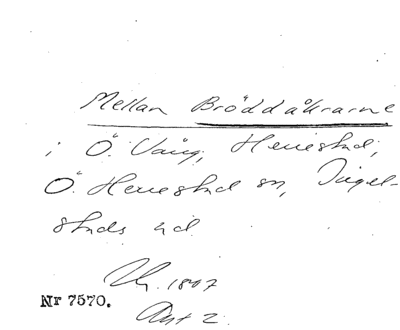 Mellan Bröddåkrarne
i Ö. Vång, Herrestad,
Ö. Herrestad sn, Ingel-
stads hd
1807
Nr 7570.
Akt 2.